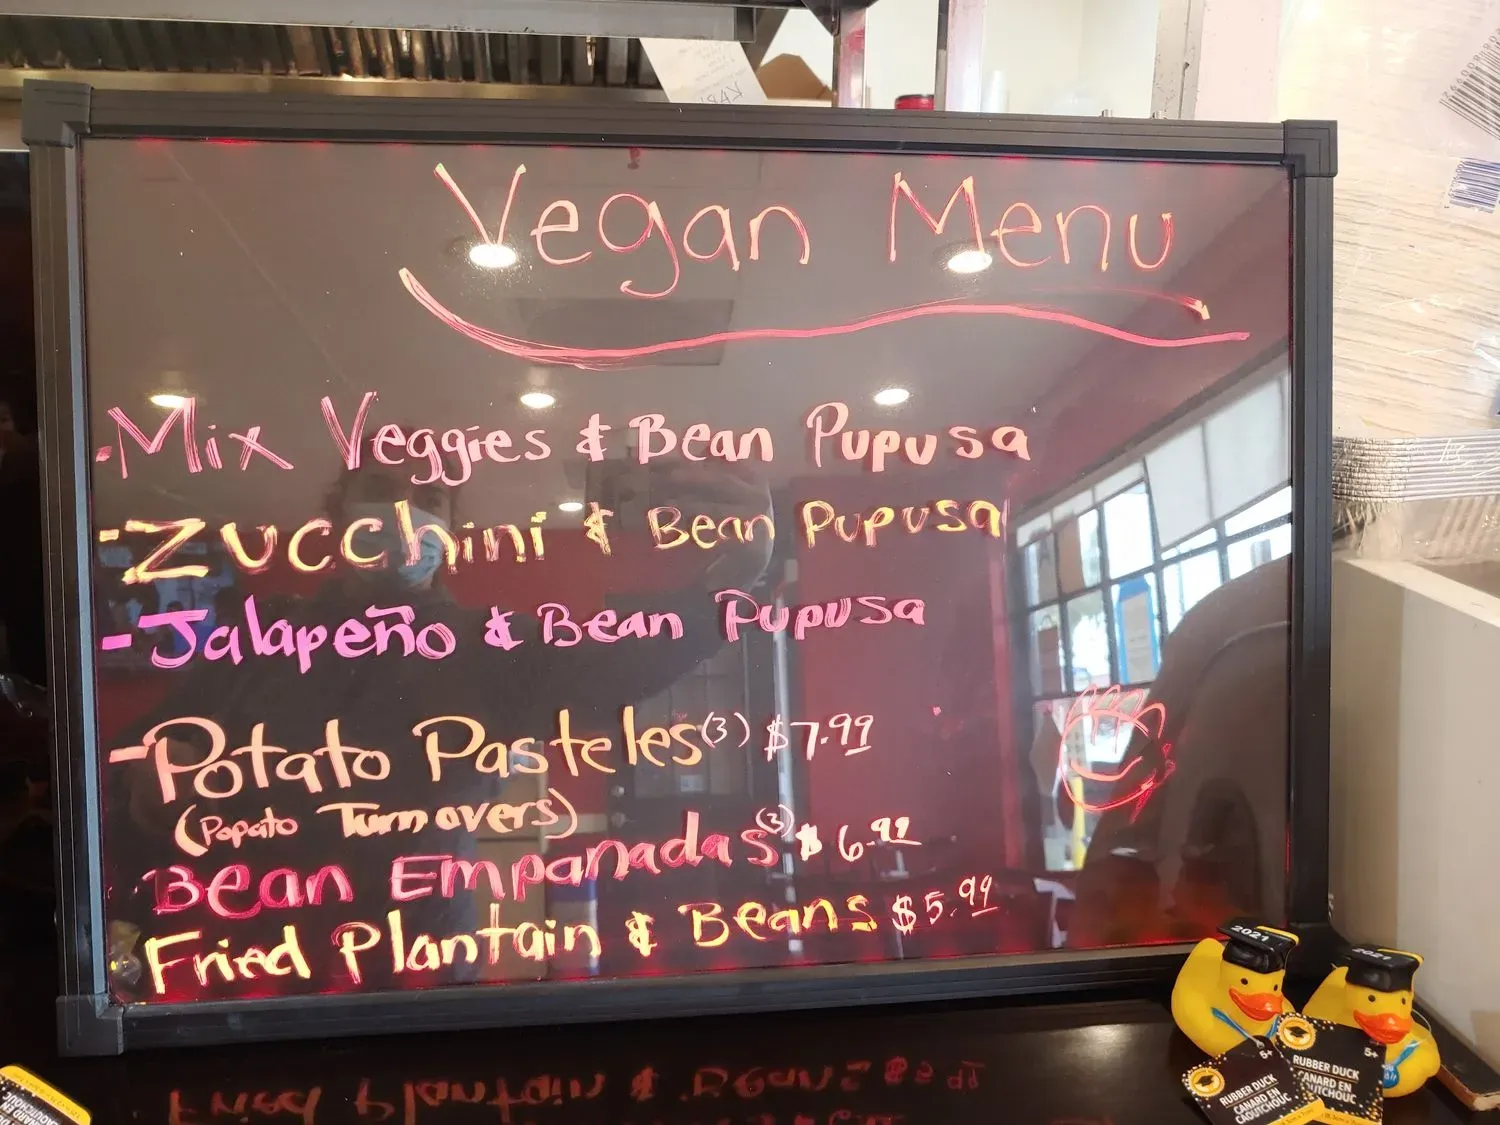 Vegan Menu
-Mix Veggies & Bean Pupusa
-Zucchini & Bean Pupusa
-Jalapeño & Bean Pupusa
-Potato Pasteles (3) $7.99
(Popato Turnovers)
Bean Empanadas (3) $6.99
Fried Plantain & Beans $5.99
2021
2021
5+
RUBBER DUCK
CANARD EN
CAOUTCHOUC
5+
RUBBER DUCK
CANARD EN